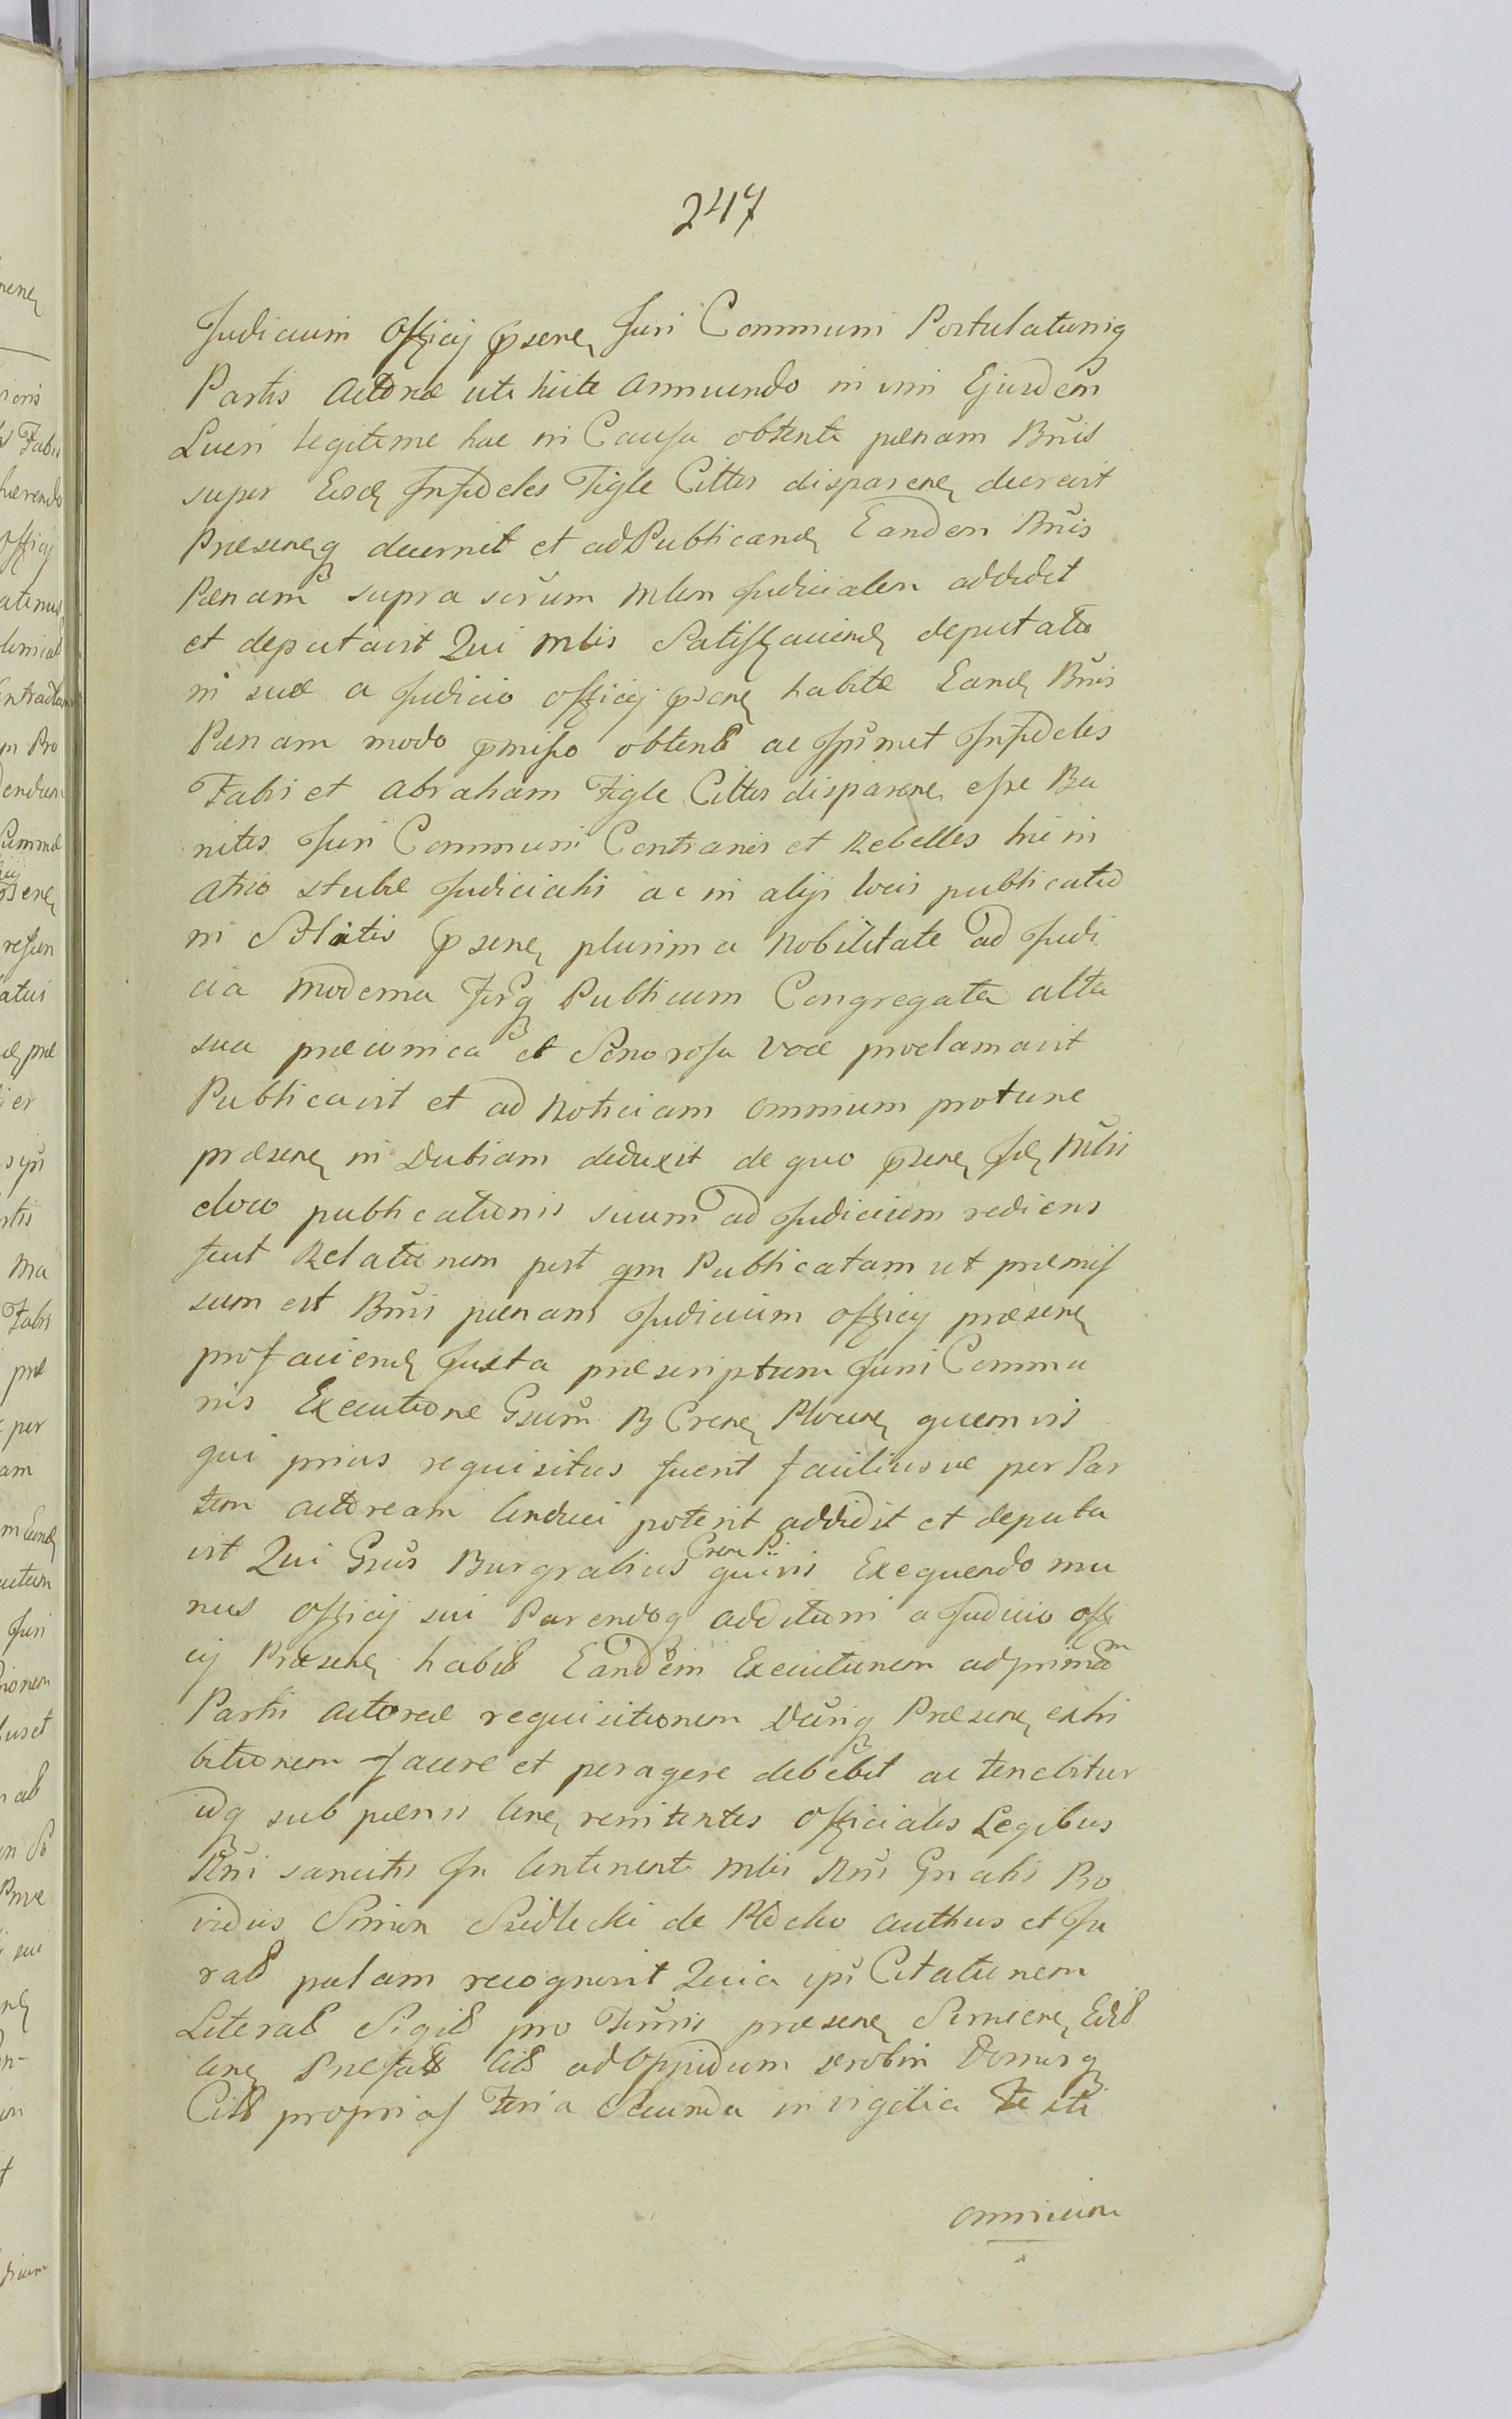 247
Judicium Officij pserne Juri Communi Postulationiq
Partis Actoreæ uti juste Annuendo in vim Ejusdem
Lucri legitime hac in Causa obtenti pænam Bnis
super Eosd Infideles Figle Cittos disparen decrevit
Præsenq decernit et ad Publicand Eandem Bnis
Pænam supra scrum Mlem Judicialem addidit
et deputavit Qui Mlis Satisfaciend deputatio
ni suæ a Judicio officij psen habitæ Eand Bnis
Pænam modo pmisso obtent ac Ipsmet Infideles
Fabis et Abraham Figle Cittos disparen esse Ba
nitos Juri Communi Contrarios et Rebelles hic in
atrio stubæ Judicialis ac in alijs locis publicatio
ni Solitis psen plurima Nobilitate ad Judi
cia moderna Forq Publicum Congregata alta
sua præconica et Sonorosa voce proclamavit
Publicavit et ad Noticiam omnium protunc
præsen in Dubiam deduxit de quo psen Id Mlis
eloco publicationis suum ad Judicium rediens
fecit Relationem post qm Publicatam ut præmis
sum est Bnis pænam Judicium officij præsen
profaciend Juxta præscriptum Juris Commu
nis Executione Gsum B Cren Plocen quemvis
qui prius requisitus fuerit faciliusve per Par
tem actoream Conduci poterit addidit et deputa
vit Qui Gsus Burgrabius Cren P: quivis Exequendo mu
nus officij sui Parendoq additioni a Judicio offi
cij Præsen habit Eandem Executionem ad primam
Partis actoreæ requisitionem Dunq Præsen exhi
bitionem facere et peragere debebit ac tenebitur
idq sub pænis Cone renitentes Officiales Legibus
Rni sancitis In Continenti Mlis Rni Gnalis Pro
vidus Simon Siedlecki de Plocko authus et Ju
rat palam recognovit Quia ipse Citationem
Literat Sigil pro Termis præsen Simien Edit
Cone Præfat Cit ad Oppidum Serobin Domusq
Cit propriaf Feria Secunda in vigilia Festi
omnium